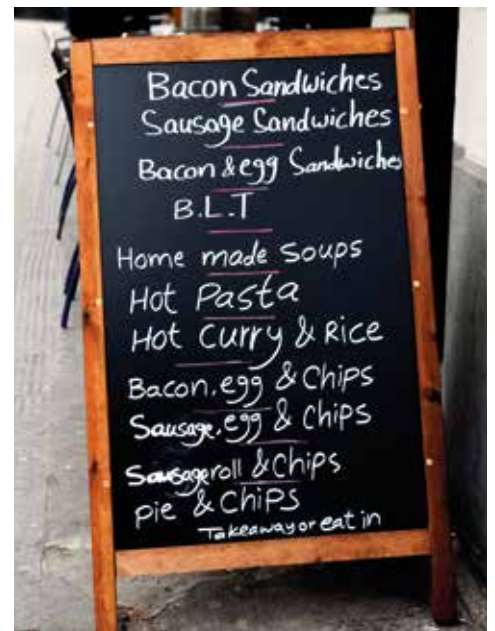 Bacon Sandwiches
Sausage Sandwiches
Bacon & egg Sandwiches
B.L.T
Home made Soups
Hot Pasta
Hot Curry & Rice
Bacon.egg & Chips
Sausage.egg & Chips
Sausage roll & Chips
pie & Chips
Takeaway or eat in